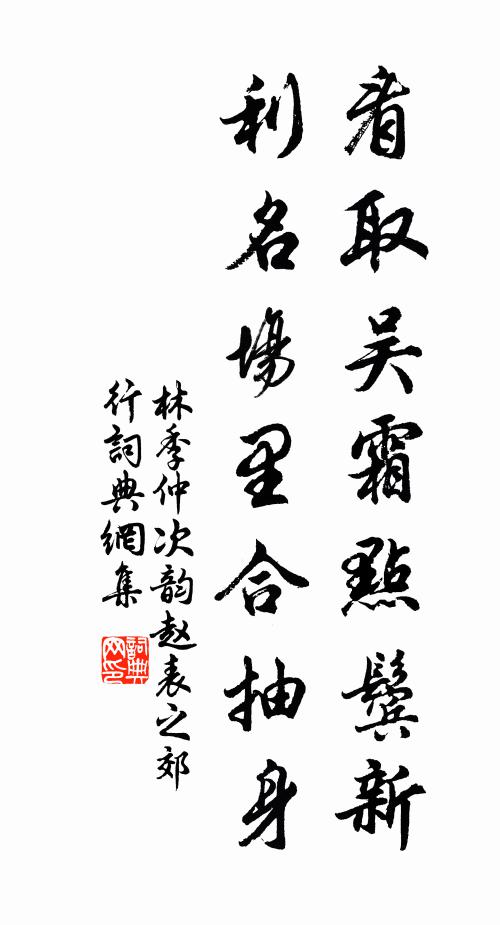 看取吴霜點鬢新
利名場里合抽身
林季仲次韵赵表之郊
行詞典網集
詞典
网印